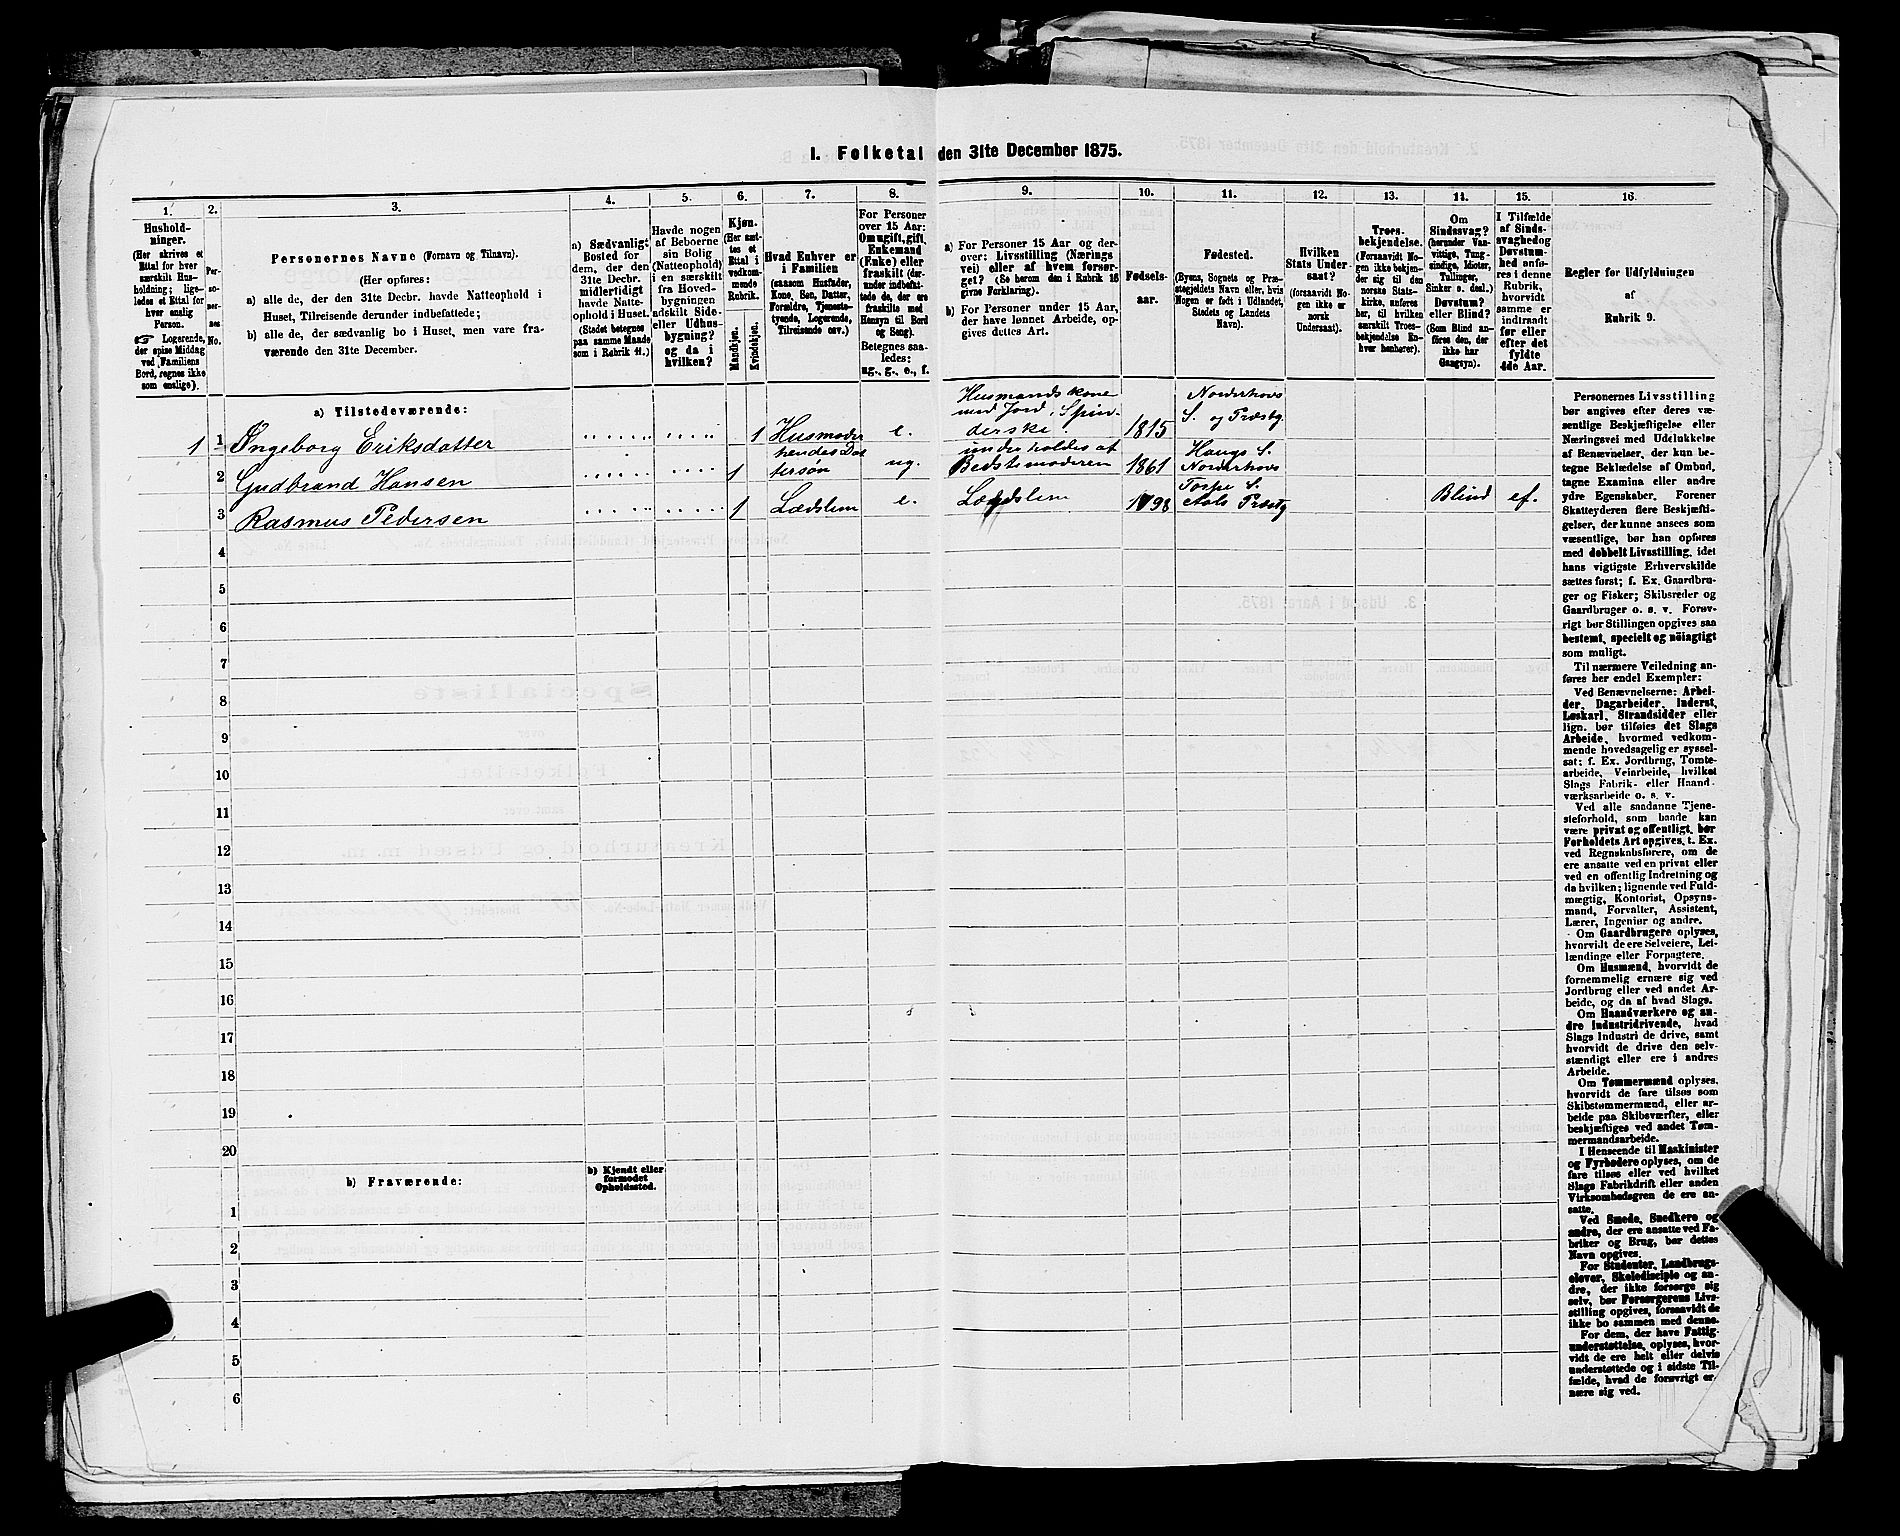 I. Folketal den 31te December 1875.
1.
Hushold-
ninger.
(Her skrives et
Ettal for hver
særskilt Hus-
holdning; lige-
ledes et Ettal for
hver enslig
Person.
Logerende,
der spise Middag
ved Familiens
Bord, regnes ikke
som enslige).
2.
Per-
so-
ner-
nes
No.
3.
Personernes Navne (Fornavn og Tilnavn).
(Her opføres:
a) alle de, der den 31te Decbr. havde Natteophold i
Huset, Tilreisende derunder indbefattede;
b) alle de, der sædvanlig bo i Huset, men vare fra-
værende den 31te December.
4.
a) Sædvanligt
Bosted for
dem, der den
31te Decbr.
midlertidigt
havde Natte-
ophold i Huset.
(Stedet betegnes
paa samme Maade
som i Rubrik 11.)
5.
Havde nogen
af Beboerne
sin Bolig
(Natteophold)
i en særskilt
fra Hoved-
bygningen
adskilt Side-
eller Udhus-
bygning?
og da i
hvilken?
6.
Kjøn.
(Her sæt-
tes et
Ettal i
vedkom-
mende
Rubrik.
Mandkjøn.
Kvindekjøn.
7.
Hvad Enhver er
i Familien
(saasom Husfader,
Kone, Søn, Datter,
Forældre, Tjeneste-
tyende, Logerende,
Tilreisende osv.)
8.
For Personer
over 15 Aar:
Om ugift, gift,
Enkemand
(Enke) eller
fraskilt (der-
under indbefat-
tede de, der ere
fraskilte med
Hensyn til Bord
og Seng).
Betegnes saa-
ledes:
ug., g., e., f.
9.
a) For Personer 15 Aar og der-
over: Livsstilling (Nærings
vei) eller af hvem forsør-
get. (Se herom den i Rubrik 16
givne Forklaring).
b) For Personer under 15 Aar,
der have lønnet Arbeide, op-
gives dettes Art.
10.
Fødsels-
aar.
11.
Fødested.
(Byens, Sognets og Præ-
stegjeldets Navn eller, hvis
Nogen er født i Udlandet,
Stedets og Landets
Navn).
12.
Hvilken
Stats Under-
saat?
(forsaavidt No-
gen ikke er
norsk
Undersaat).
13.
Troes-
bekjendelse.
(Forsaavidt No-
gen ikke bekjen-
der sig til den
norske Stats-
kirke, anføres
her, til hvilken
særskilt Troes-
bekjendelse En-
hver henhører).
14.
Om
Sindssvag?
(herunder Van-
vittige, Tung-
sindige, Idioter,
Tullinger,
Sinker o. desl.)
Døvstum?
eller Blind?
(Som Blind an-
føres den, der
ikke har
Gangsyn).
15.
I Tilfælde
af Sinds-
svaghed og
Døvstum-
hed anfø-
res i denne
Rubrik,
hvorvidt
samme er
indtraadt
før eller
efter det
fyldte
4de Aar.
16.
Regler for Udfyldningen
af
Rubrik 9.
a) Tilstedeværende:
1 1 Ingeborg Eriksdatter 1 Husmoder e. Husmands kone
med Jord, Spin-
derske. 1815 Norderhovs
S. og Præstg.
2 Gudbrand Hansen 1 hendes Dat
tersøn ug. underholdes af
Bedstemoderen 1861 Haugs S.
Norderhovs
3 Rasmus Pedersen 1 Lædslem e. Lædslem 1798 Torpe S.
Aals Præstg Blind ef.
4
5
6
7
8
9
10
11
12
13
14
15
16
17
18
19
20
b) Fraværende:
b) Kjendt eller
formodet
Opholdssted.
1
2
3
4
5
6
Personernes Livsstilling
bør angives efter deres væ-
sentlige Beskjæftigelse eller
Næringsvei med Udelukkelse
af Benævnelser, der kun be-
tegne Beklædelse af Ombud,
tagne Examina eller andre
ydre Egenskaber. Forener
Skatteyderen flere Beskjæfti-
gelser, der kunne ansees som
væsentlige, bør han opføres
med dobbelt Livsstilling, idet
hans vigtigste Erhvervskilde
sættes først; f. Ex. Gaardbru-
ger og Fisker; Skibsreder og
Gaardbruger o. s. v. Forøv-
rigt bør Stillingen opgives saa
bestemt, specielt og nöiagtigt
som muligt.
Til nærmere Veiledning an-
føres her endel Exempler:
Ved Benævnelserne: Arbei-
der, Dagarbeider, Inderst,
Løskarl, Strandsidder eller
lign. bør tilføies det Slags
Arbeide, hvormed vedkom-
mende hovedsagelig er syssel-
sat; f. Ex. Jordbrug, Tomte-
arbeide, Veiarbeide, hvilket
Slags Fabrik- eller Haand-
værksarbeide o. s. v.
Ved alle saadanne Tjene-
steforhold, som baade kan
være privat og offentligt, bør
Forholdets Art opgives, f. Ex.
ved Regnskabsførere, om de
ere ansatte ved en privat eller
ved en offentlig Indretning og
da hvilken; lignende ved Fuld-
mægtig, Kontorist, Opsyns-
mand, Forvalter, Assistent,
Lærer, Ingeniør og andre.
Om Gaardbrugere oplyses,
hvorvidt de ere Selveiere, Lei-
lændinge eller Forpagtere.
Om Husmænd, hvorvidt de
fornemmelig ernære sig ved
Jordbrug eller ved andet Ar-
beide, og da af hvad Slags.
Om Haandværkere og an-
dre Industridrivende, hvad
Slags Industri de drive, samt
hvorvidt de drive den selv-
stændigt eller ere i andres
Arbeide.
Om Tømmermænd oplyses,
hvorvidt de fare tilsøs som
Skibstømmermænd, eller ar-
beide paa Skibsværfter, eller
beskjæftiges ved andet Tøm-
mermandsarbeide.
I Henseende til Maskinister
og Fyrbødere oplyses, om de
fare tilsøs eller ved hvilket
Slags Fabrikdrift eller anden
Virksomhedsgren de ere an-
satte.
Ved Smede, Snedkere og
andre, der ere ansatte ved Fa-
briker og Brug, bør dettes
Navn opgives.
For Studenter, Landbrugs-
elever, Skoledisciple og an-
dre, der ikke forsørge sig
selv, bør Forsørgerens Livs-
stilling opgives, forsaavidt de
ikke bo sammen med denne.
For dem, der have Fattig-
understøttelse, oplyses, hvor-
vidt de ere helt eller delvis
understøttede og i sidste Til-
fælde, hvad de forøvrigt er-
nære sig ved.